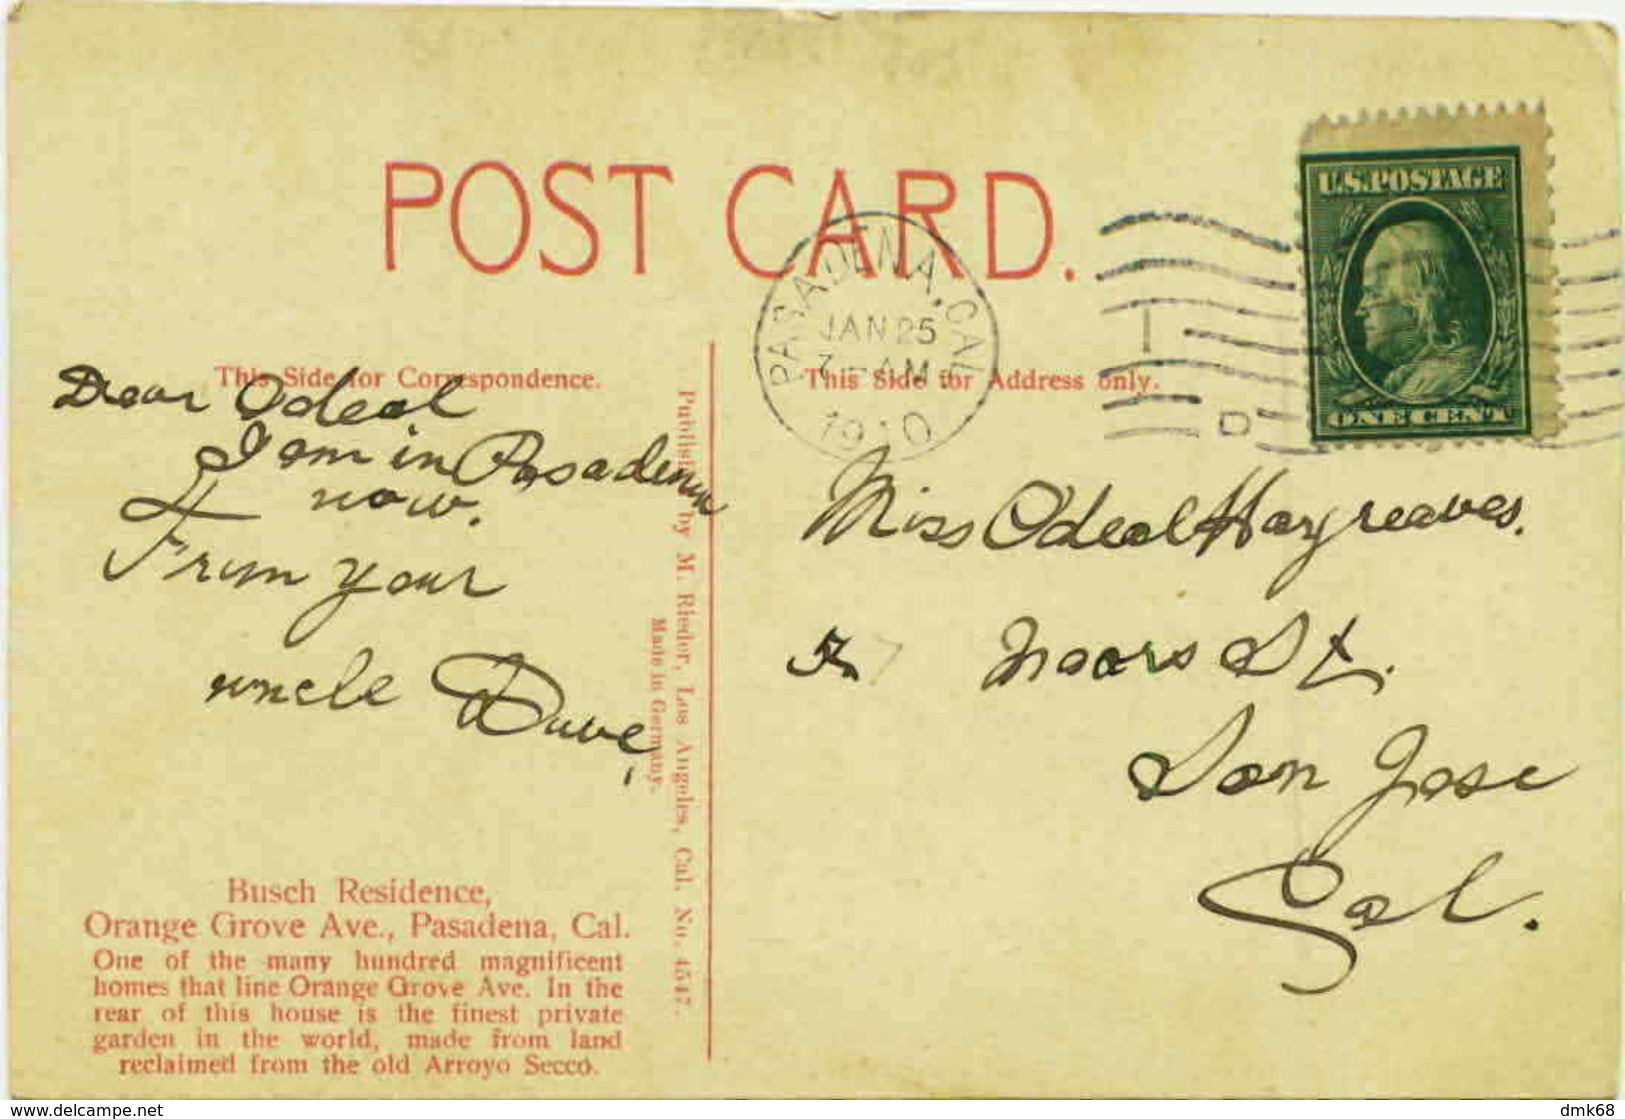 POST CARD.
U.S. POSTAGE
ONE CENT
PASADENA, CAL.
JAN 25
7 - AM
1910
This Side for Correspondence.
This Side for Address only.
Dear Odeal
I am in Pasadena
now.
From your
uncle Dave,
Published by M. Rieder, Los Angeles, Cal. No. 4547.
Made in Germany.
Miss Odeal Hargreaves.
St.
San Jose
Cal.
Busch Residence,
Orange Grove Ave., Pasadena, Cal.
One of the many hundred magnificent
homes that line Orange Grove Ave. In the
rear of this house is the finest private
garden in the world, made from land
reclaimed from the old Arroyo Secco.
delcampe.net
dmk68